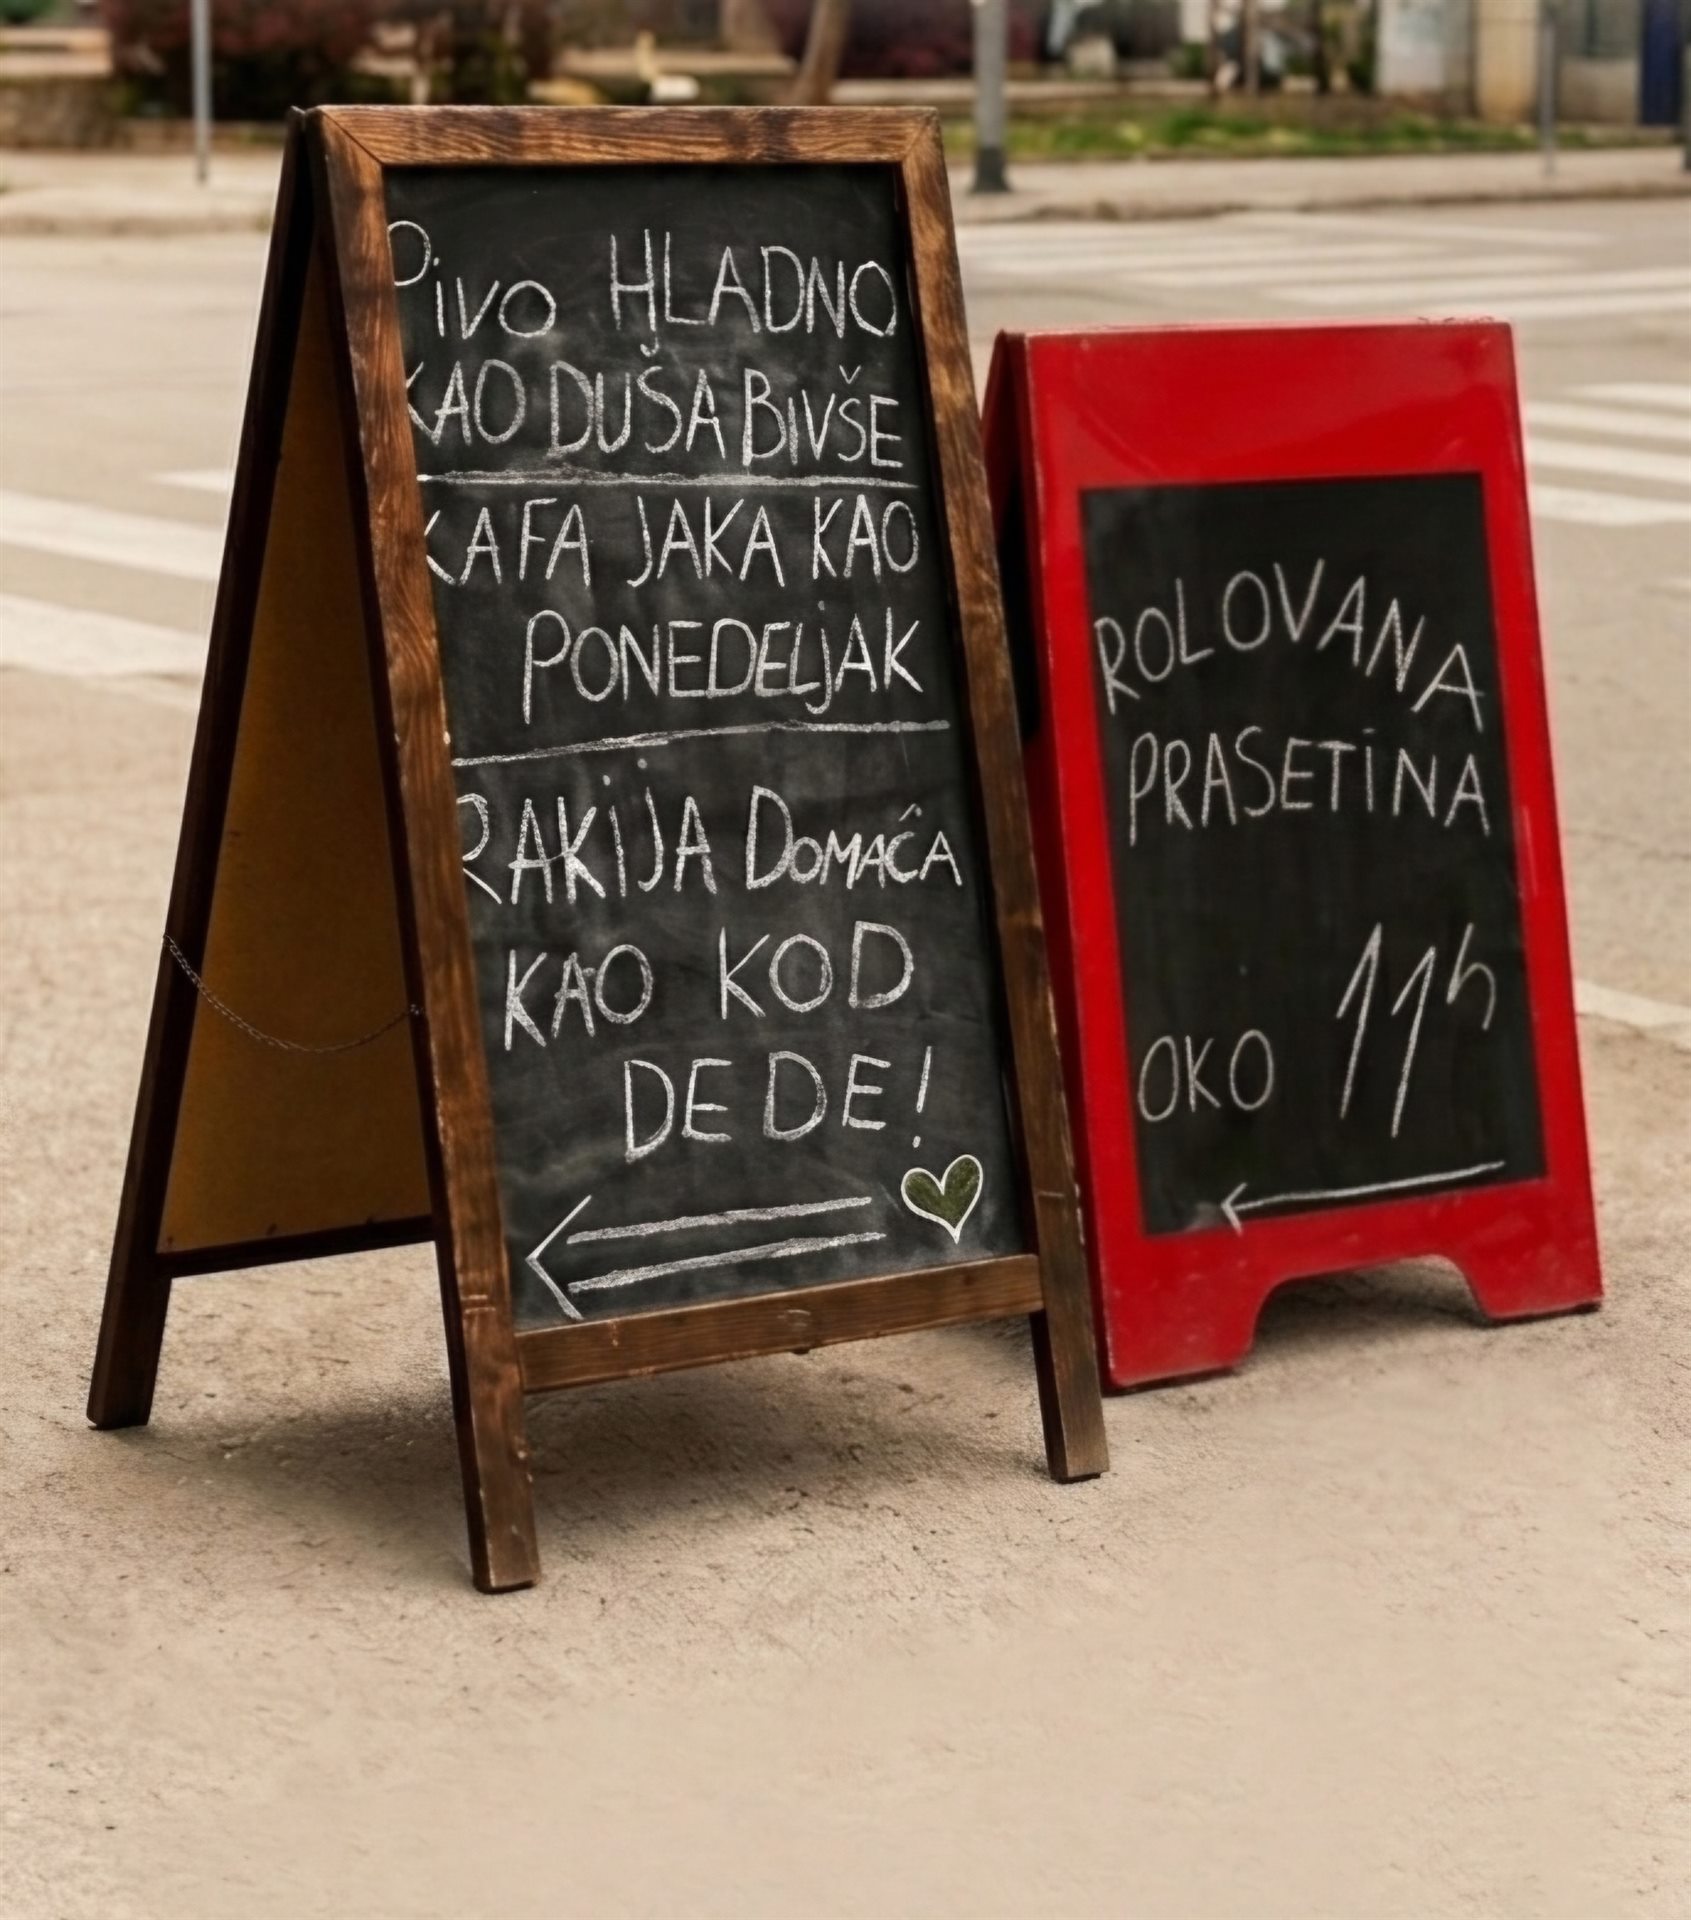 Pivo HLADNO
KAO DUŠA BIVŠE
KAFA JAKA KAO
PONEDELjAK
RAKIJA DOMAĆA
KAO KOD
DEDE!
ROLOVANA
PRASETINA
OKO 11h